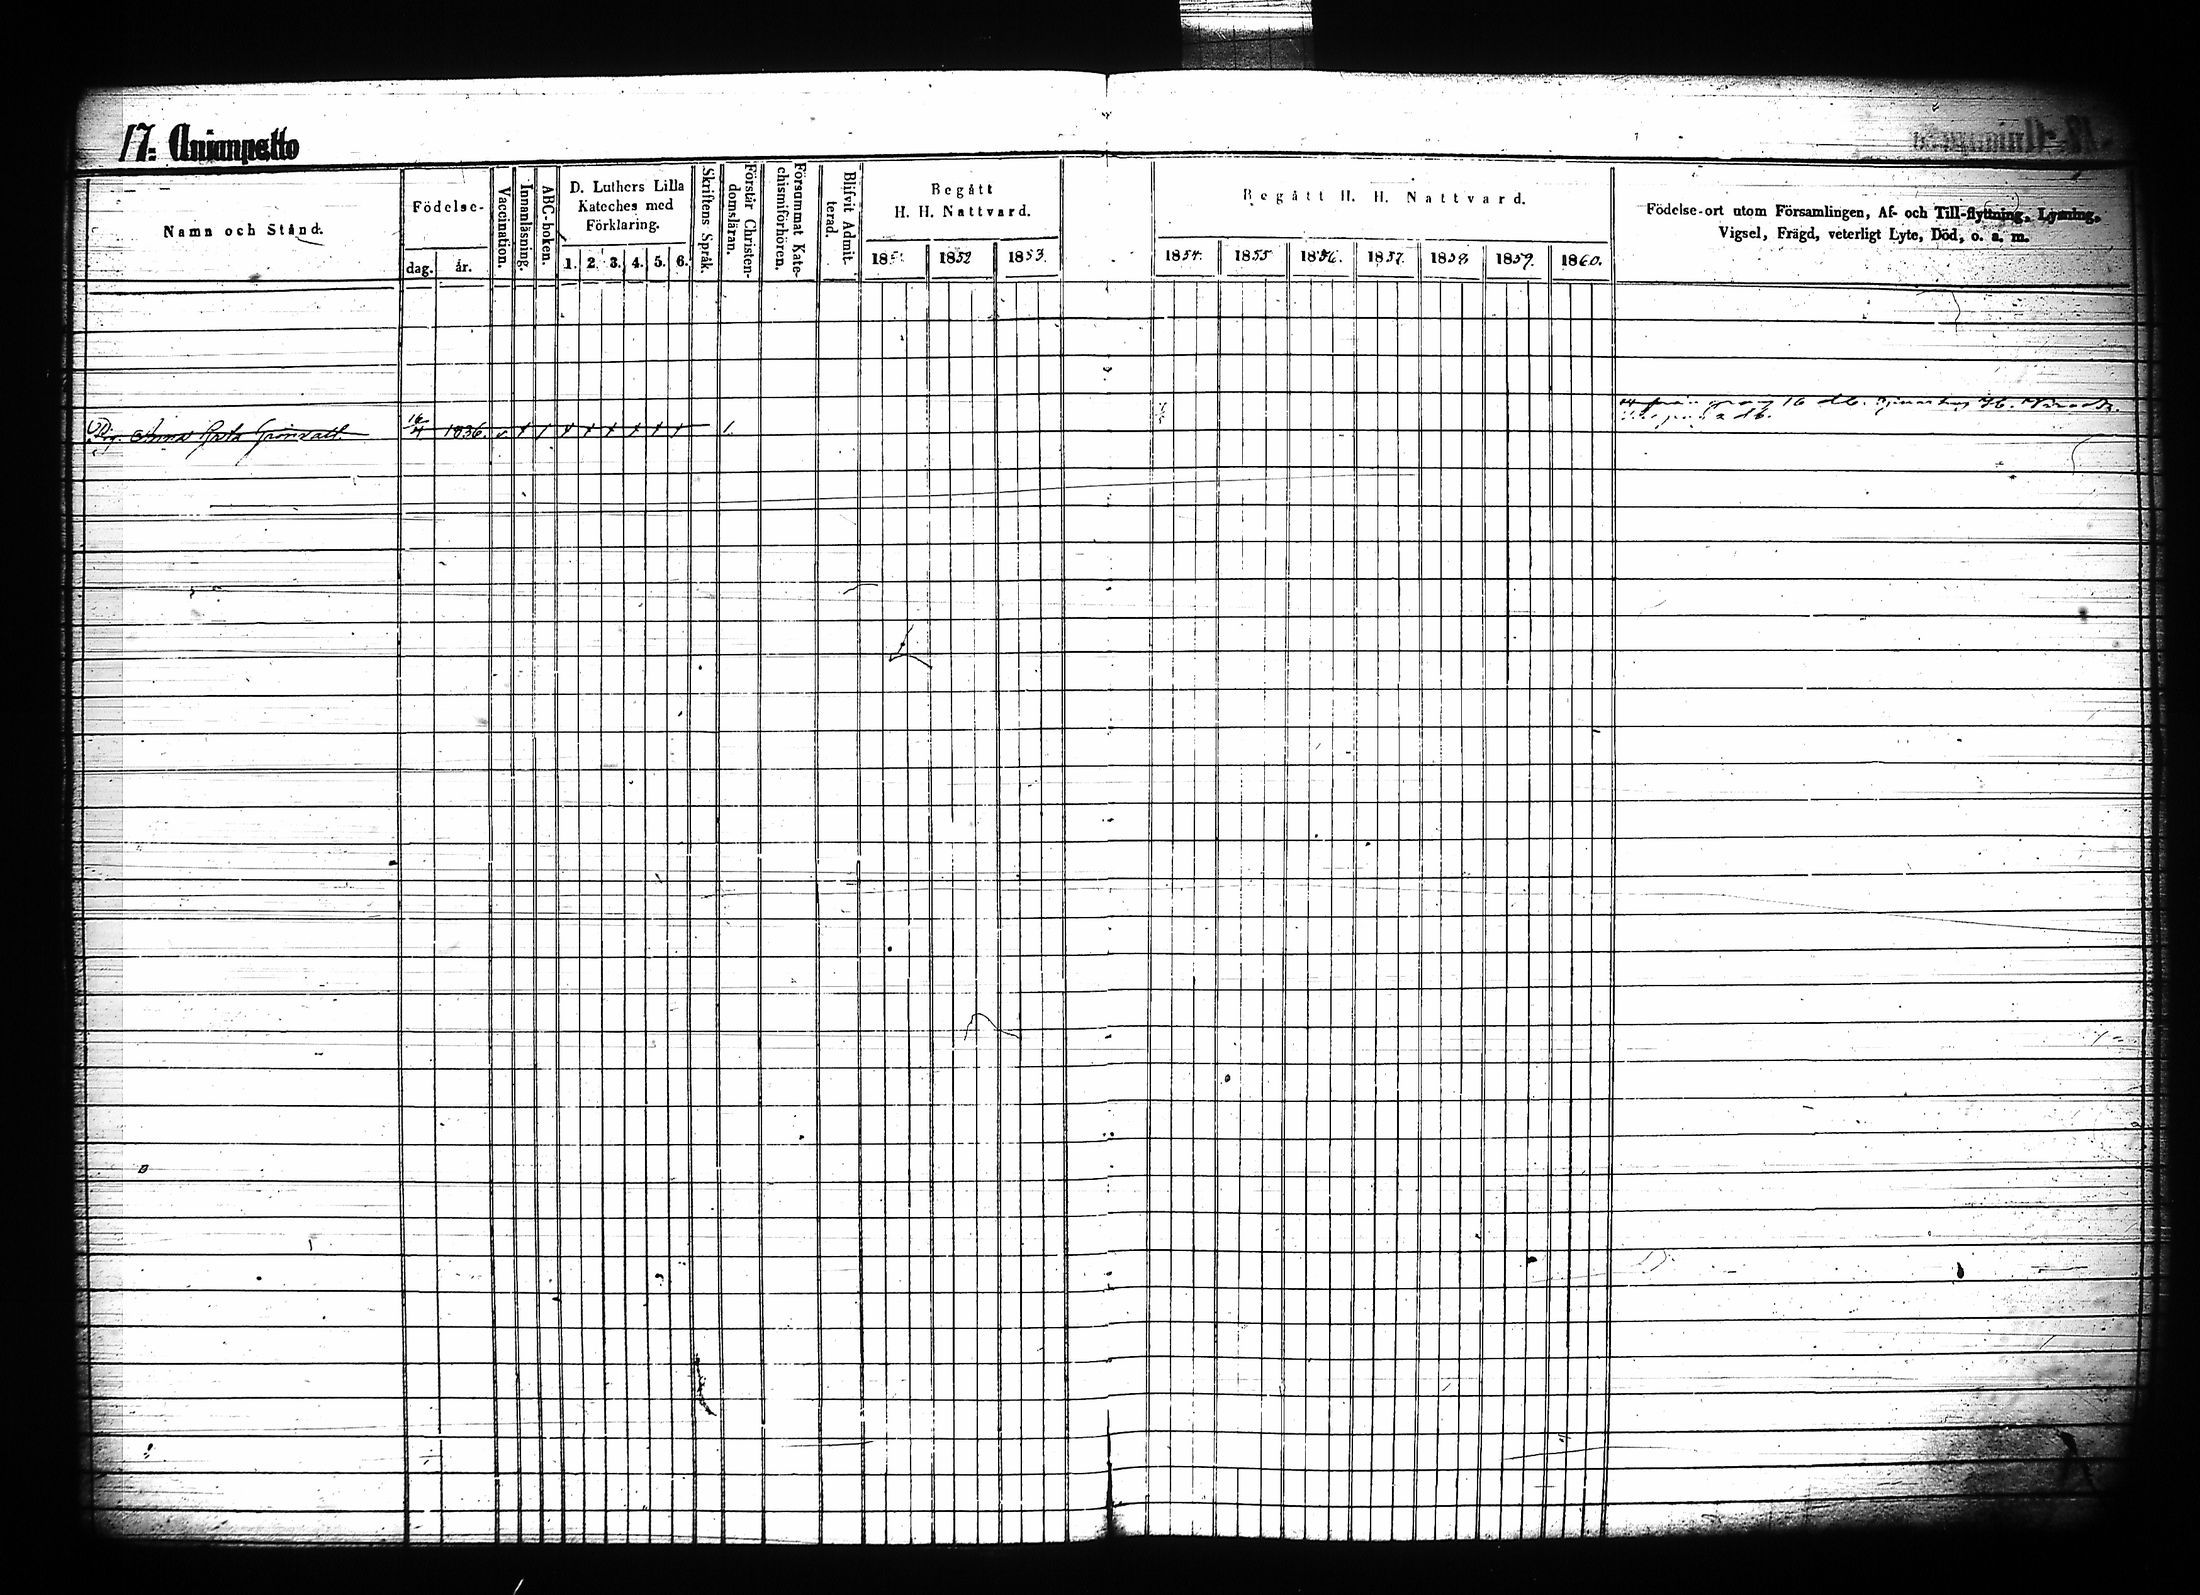 17: Anianpelto
Namn och Stånd.
Födelse-
dag. år.
Vaccination.
Innanläsning.
ABC-boken.
D. Luthers Lilla
Kateches med
Förklaring.
1. 2. 3. 4. 5. 6.
Skriftens Språk.
Förstår Christen-
domsläran.
Försummat Kate-
chismiförhören.
Blifvit Admit-
terad.
Begått
H. H. Nattvard.
185 1852 1853.
Begått H. H. Nattvard.
1854. 1855 1856. 1857. 1858 1859. 1860.
Födelse-ort utom Församlingen, Af- och Till-flyttning, Lysning,
Vigsel, Frägd, veterligt Lyte, Död, o. s. m.
Anna Grönvall 16/4 1836. v x / x x x x x x 1.
16 db.
db.